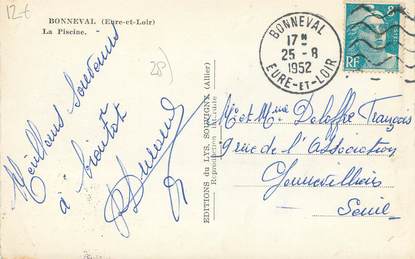 12€
BONNEVAL (Eure-et-Loir)
La Piscine.
28)
Meilleurs Souvenirs
à bientôt
EDITIONS du LYS, SOUVIGNY (Allier)
Reproduction interdite
BONNEVAL
17H
25-8
1952
EURE-ET-LOIR
RF
Mr et Mme Delaffre François
9 rue de l'Association
Gennevilliers
Seine